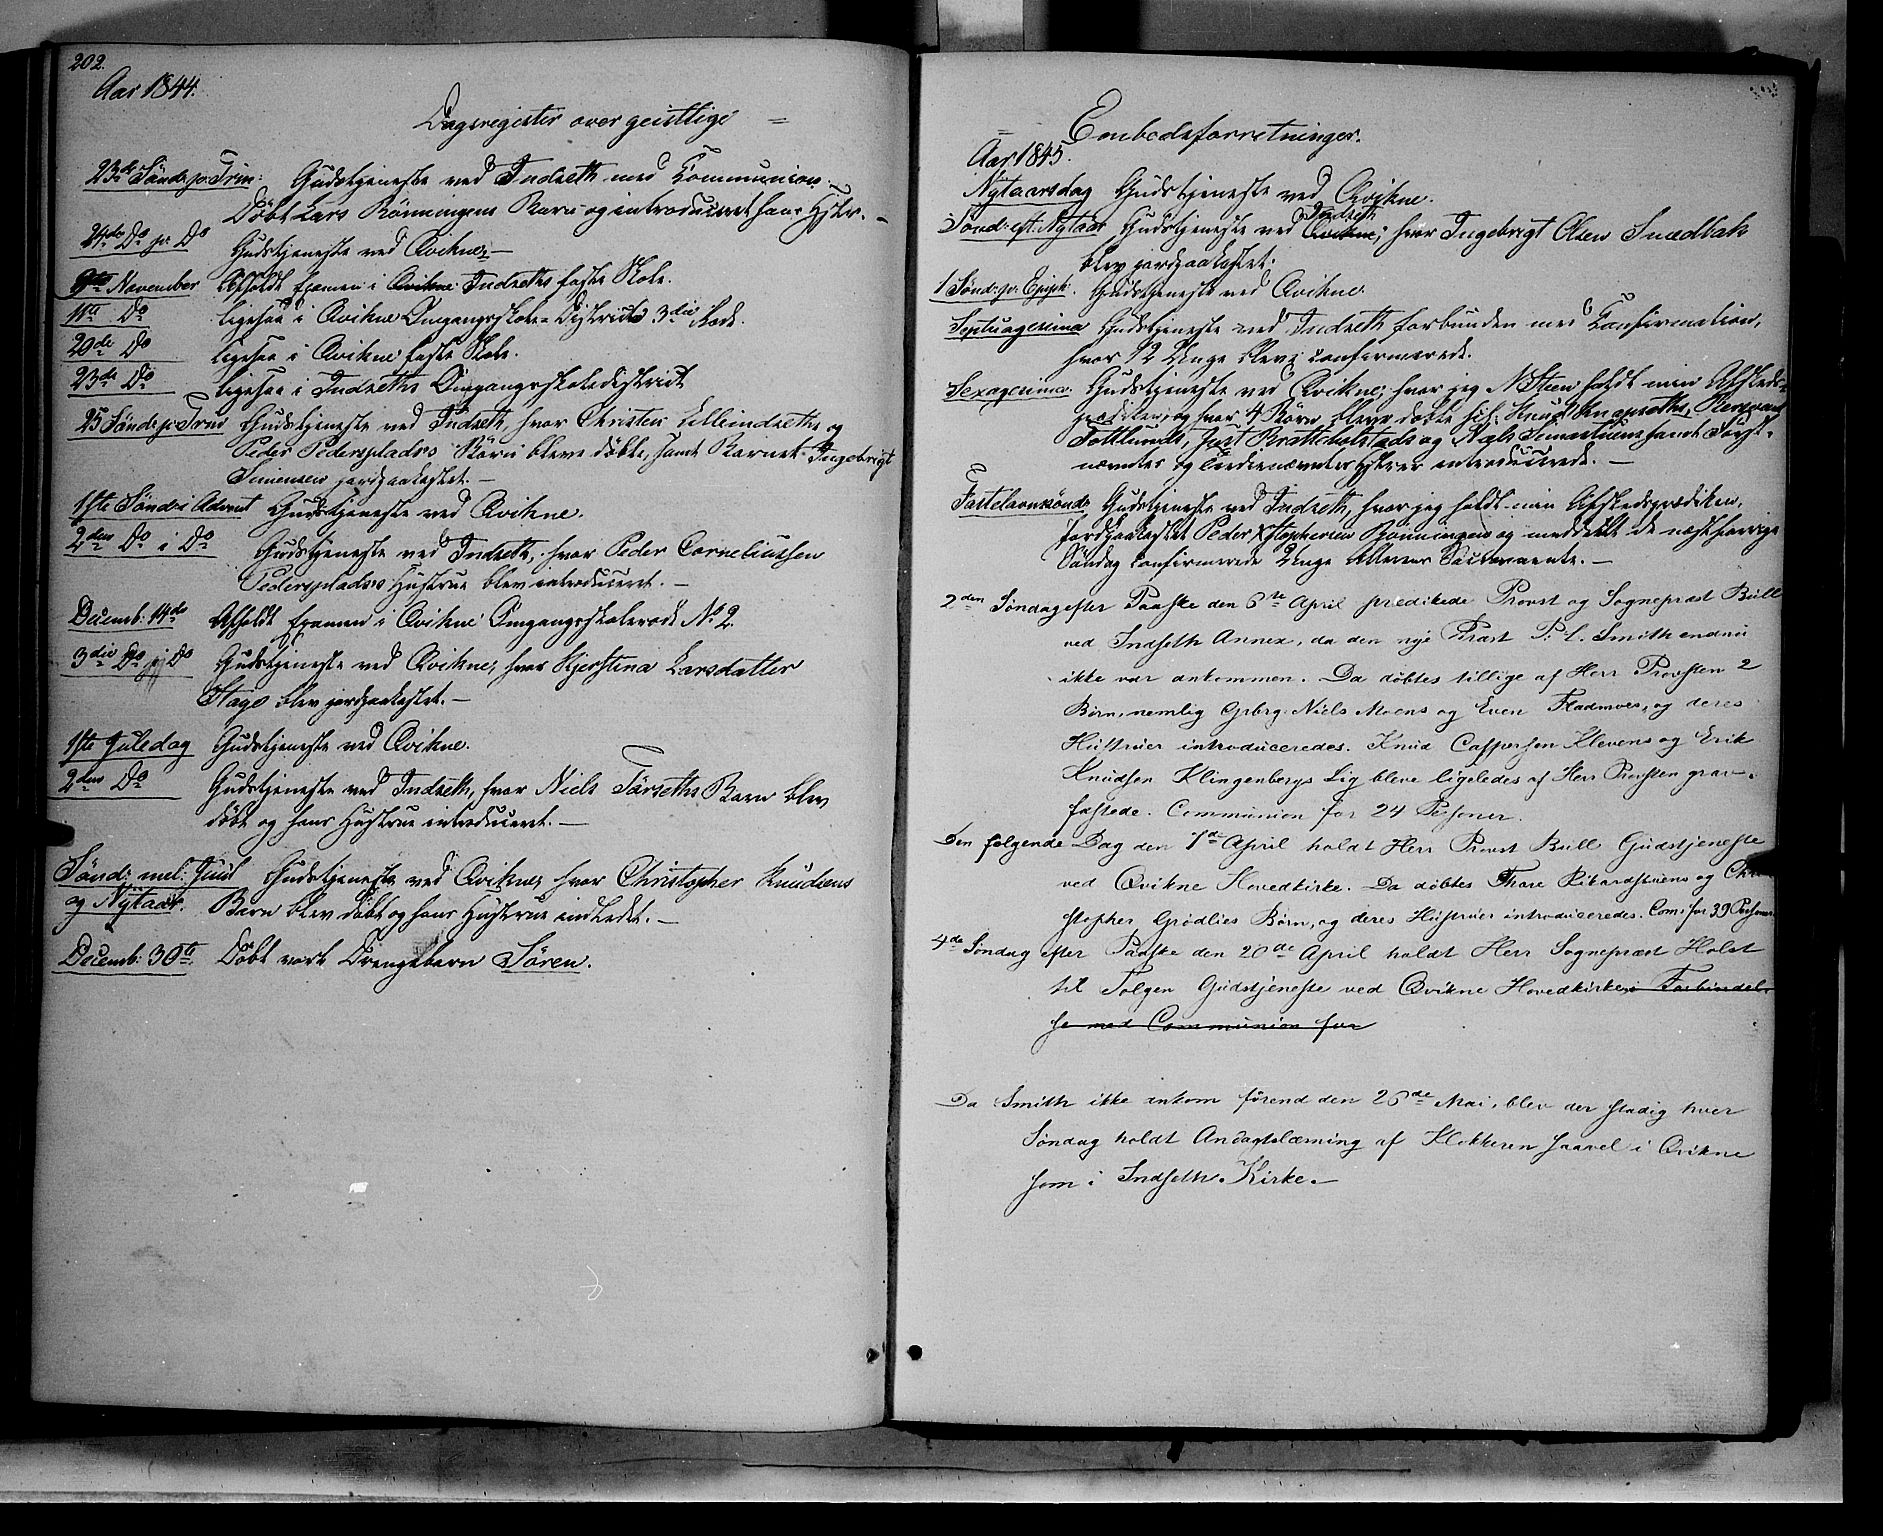 202.
Aar 1844.
Dagsregister over geistlige =
23de Sønd. p. Trin: Gudstjeneste ved Indseth med Communion.
Døbt Lars Rönningens Barn og introduceret hans Hstr. –
24de Do p. Do Gudstjeneste ved Qvikne –
9de November Afholdt Examen i Qvikne Indseths faste Skole.
11te Do ligesaa i Qvikne Omgangsskole-Districts 3die Rode.
20de Do ligesaa i Qvikne faste Skole.
23de Do ligesaa i Indseths Omgangsskoledistrict
25 Sønd. p. Trin Gudstjeneste ved Indseth, hvor Christen Lilleindseths og
Peder Pederspladses Børn bleve døbte, samt Barnet Ingebrigt
Simensen jordpaakastet. –
1ste Sønd. i Advent Gudstjeneste ved Qvikne.
2den Do i Do Gudstjeneste ved Indseth, hvor Peder Corneliussen
Pederspladses Hustrue blev introduceret. –
Decemb: 14de Afholdt Examen i Qvikne Omgangsskolerode No 2.
3die Do i Do Gudstjeneste ved Qvikne, hvor Kjerstina Larsdatter
Hage blev jordpaakastet. –
1ste Juledag Gudstjeneste ved Qvikne.
2den Do Gudstjeneste ved Indseth, hvor Niels Törseths Barn blev
døbt og hans Hustrue introduceret. –
Sønd: mel: Juul Gudstjeneste ved Qvikne, hvor Christopher Knudsens
og Nytaar. Barn blev døbt og hans Hustrue indledet. –
Decemb: 30te Döbt vort Drengebarn Sören.
= Embedsforretninger.
Aar 1845.
Nytaarsdag Gudstjeneste ved Qvikne.
Indseth
Sønd: eft. Nytaar Gudstjeneste ved Qvikne, hvor Ingebrigt Olsen Snedbak
blev jordpaakastet.
1 Sønd: p. Epiph. Gudstjeneste ved Qvikne
Septuagesima Gudstjeneste ved Indseth forbunden med Confirmation,
hvor 12 Unge bleve confirmerede.
Sexagesima Gudstjeneste ved Qvikne, hvor jeg N. Steen holdt min Afskeds-
prædiken, og hvor 4 Børn bleve døbte
og introducerede. –
Fastelavnsønd. Gudstjeneste ved Indseth, hvor jeg holdt min Afskedsprædiken,
jordpaakastet Peder Xstophersen Rönningen og meddeelt de næstforrige
Søndag confirmerede Unge Alterens Sacramente. –
2den Søndag efter Paaske den 6te April prædikede Provst og Sognepræst Bull
ved Indseth Annex, da den nye Præst P. L. Smith endnu
ikke var ankommen. Da døbtes tillige af Herr Provsten 2
Børn, nemlig Grbrg. Niels Moens og Even Fladmoes, og deres
Hustruer introduceredes. Knud Caspersen Klevens og Erik
Knudsen Klingenbergs Lig bleve ligeledes af Herr Provsten grav-
fæstede. Communion for 24 Personer.
Den følgende Dag den 7de April holdt Herr Provst Bull Gudstjeneste
ved Qvikne Hovedkirke. Da døbtes Thore Rikardstuens og Chri-
stopher Grødlies Børn, og deres Hustruer introduceredes. Com: for 39 Personer.
4de Søndag efter Paaske den 20de April holdt Herr Sognepræst Holst
til Tolgen Gudstjeneste ved Qvikne Hovedkirke i Forbindel-
se med Communion for
Da Smith ikke ankom førend den 26de Mai, blev der stadig hver
Søndag holdt Andagtslæsning af Klokkeren saavel i Qvikne
som i Indseth Kirke. –